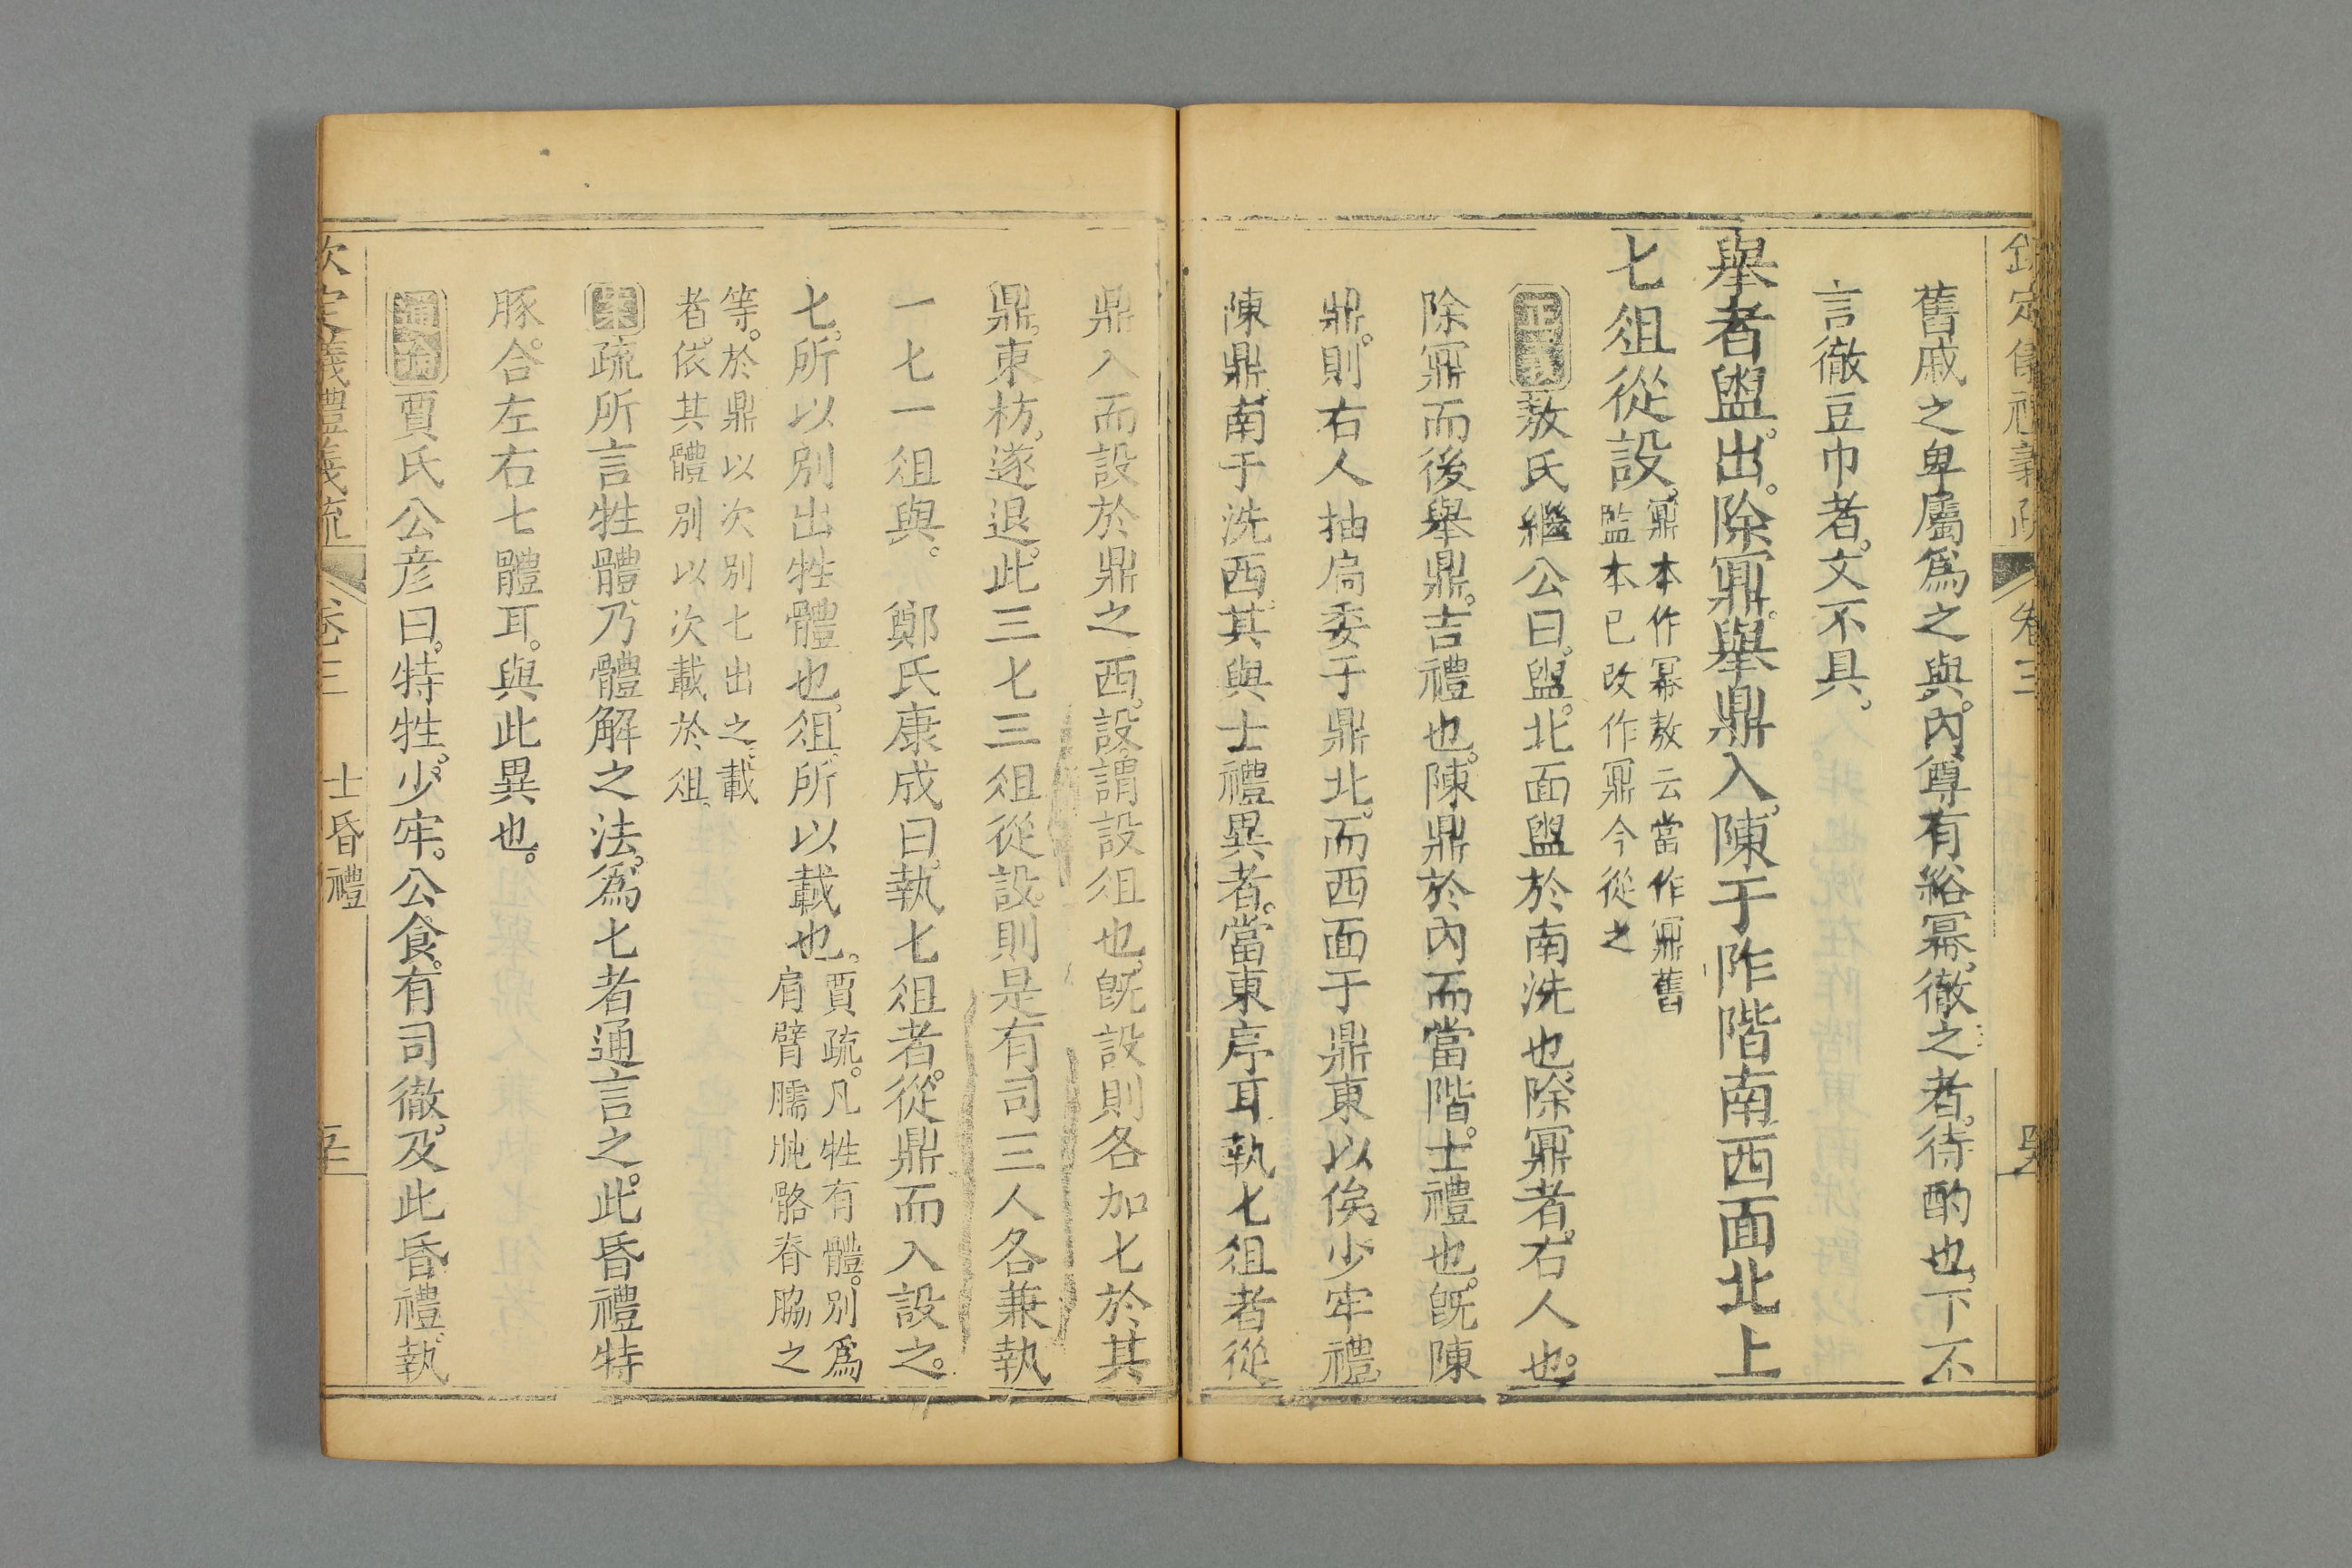 欽定儀禮義疏 卷三
舊戚之卑屬爲之與。內尊有綌冪。徹之者。待酌也。下不
言徹豆巾者。文不具。
舉者盥。出。除鼏。舉鼎入。陳于阼階南。西面北上
匕俎從設。鼏本作冪敖云當作鼏舊
監本已改作鼏今從之
正義敖氏繼公曰。盥。北面盥於南洗也。除鼏者。右人也。
除鼏而後舉鼎。吉禮也。陳鼎於內而當階。士禮也。旣陳
鼎。則右人抽扃委于鼎北。而西面于鼎東以俟。少牢禮
陳鼎。南于洗西。其與士禮異者。當東序耳。執匕俎者從
鼎入而設於鼎之西。設。謂設俎也。旣設則各加匕於其
鼎。東枋。遂退。此三匕三俎從設。則是有司三人各兼執
一匕一俎與。 鄭氏康成曰。執匕俎者。從鼎而入設之。
匕。所以別出牲體也。俎。所以載也。賈疏。凡牲有體。別爲
肩臂臑肫骼脊脇之
等。於鼎以次別匕出之。載
者。依其體別以次載於俎。
案疏所言牲體乃體解之法。爲匕者通言之。此昏禮特
豚。合左右七體耳。與此異也。
通論賈氏公彥曰。特牲。少牢。公食。有司徹。及此昏禮。執
欽定儀禮義疏 卷三 士昏禮